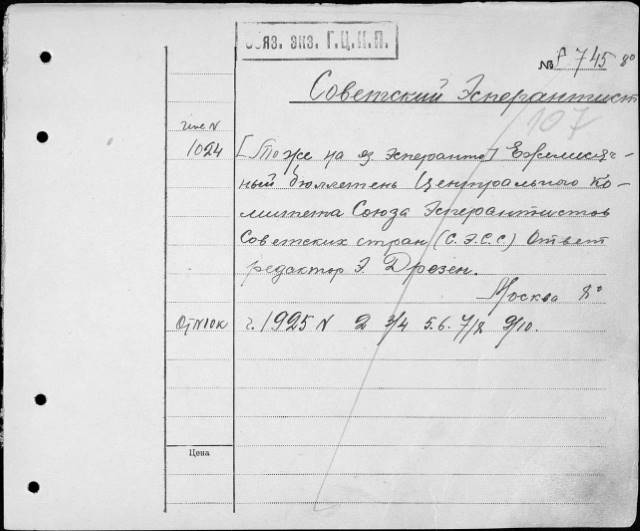 Обяз. экз. Г.Ц.К.П.
№ Р 745 8°
Советский Эсперантист
107
1024
[То же на яз эсперанто] Ежемесяч-
ный бюллетень Центрального Ко-
митета Союза Эсперантистов
Советских стран (С.Э.С.С.) Ответ
редактор Э. Дрезен.
Москва 8°
г. 1925 N 2 3/4 5.6. 7/8 9/10.
Цена